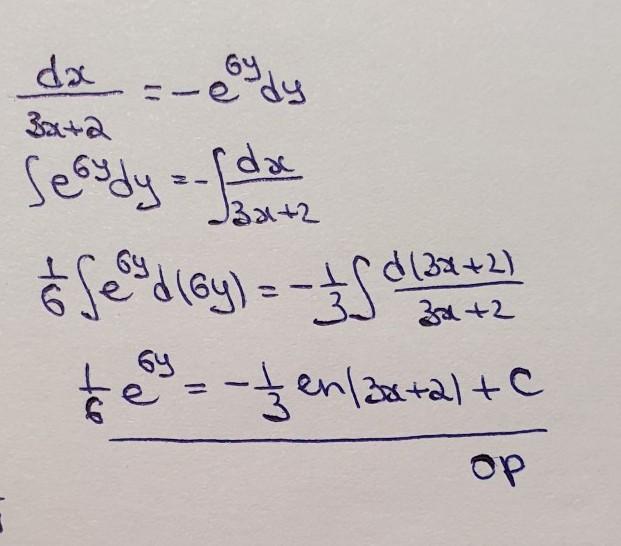 dx/(3x+2) = -e^(6y)dy
∫e^(6y)dy = -∫dx/(3x+2)
1/6 ∫e^(6y)d(6y) = -1/3 ∫ d(3x+2)/(3x+2)
1/6 e^(6y) = -1/3 ln|3x+2| + C
OP